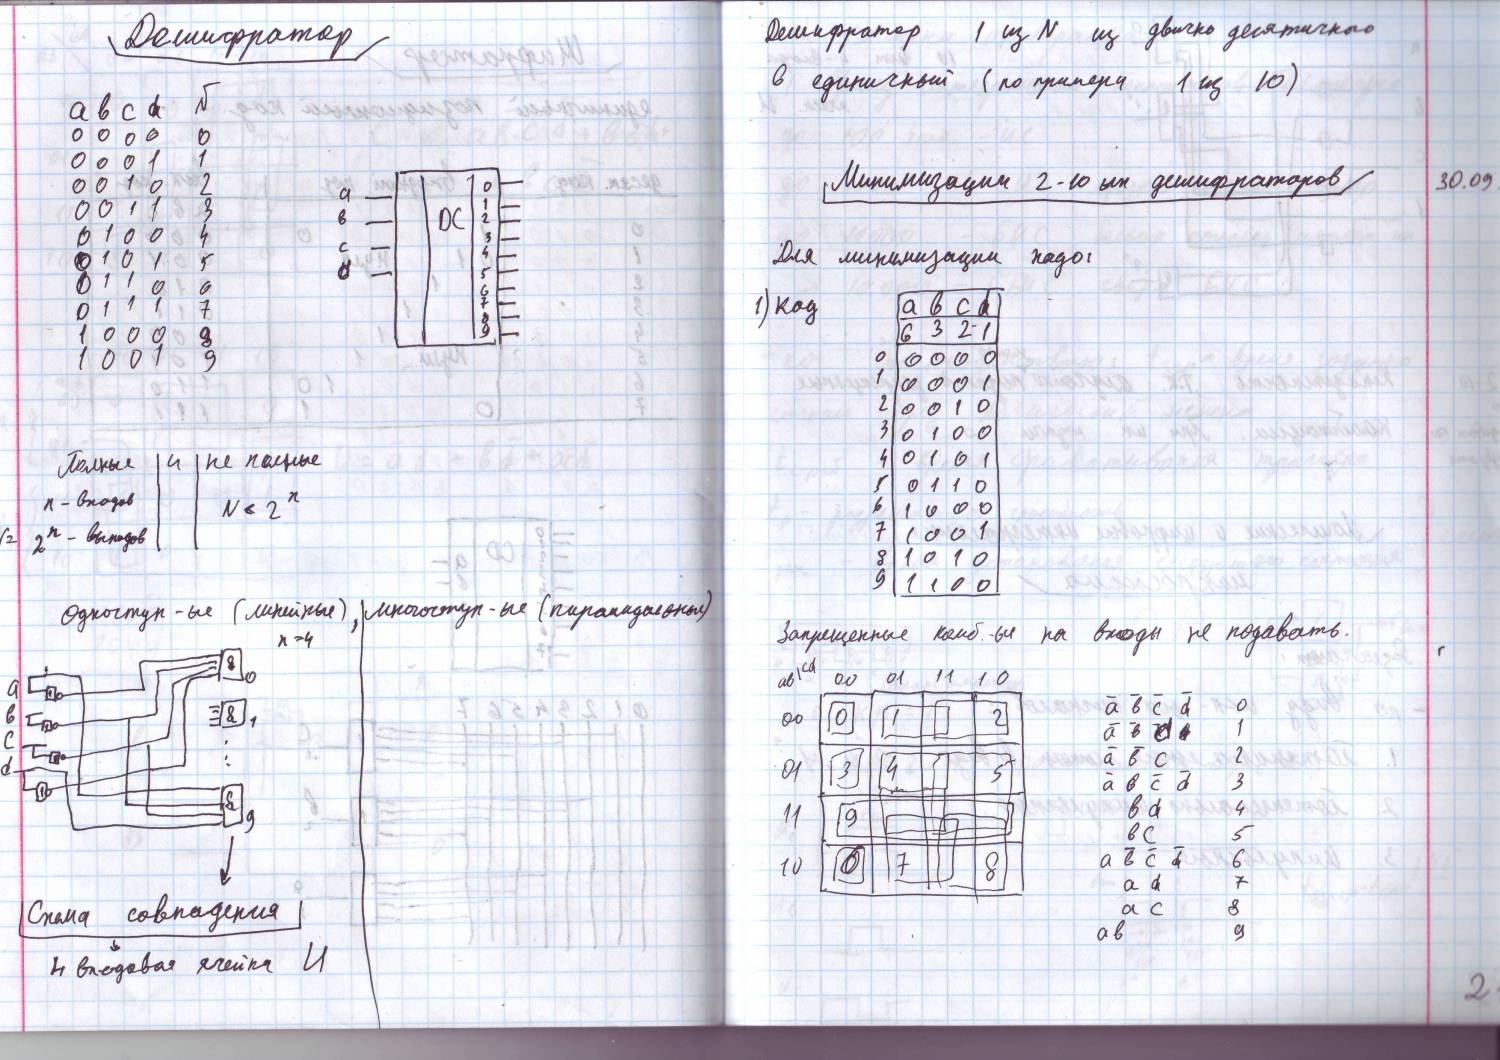 Дешифратор
a в c d N
0 0 0 0 0
0 0 0 1 1
0 0 1 0 2
0 0 1 1 3
0 1 0 0 4
0 1 0 1 5
0 1 1 0 6
0 1 1 1 7
1 0 0 0 8
1 0 0 1 9
a
в
c
d
DC
0
1
2
3
4
5
6
7
8
9
Полные и не полные
n - входов N < 2^n
2^n - выходов
одноступ-ые (линейные), многоступ-ые (пирамидальные)
n=4
a
в
c
d
1
1
1
1
& 0
& 1
& 9
Схема совпадения
4 входовая ячейка И
Дешифратор 1 из N из двично десятичного
в единичный (по примеру 1 из 10)
Минимизации 2-10 ых дешифраторов
30.09
Для минимизации надо:
1) Код a в c d
6 3 2 1
0 0 0 0 0
1 0 0 0 1
2 0 0 1 0
3 0 1 0 0
4 0 1 0 1
5 0 1 1 0
6 1 0 0 0
7 1 0 0 1
8 1 0 1 0
9 1 1 0 0
Запрещенные комб.-ые на входы не подавать.
ав\cd 00 01 11 10
00 0 1 2
01 3 4 5
11 9
10 6 7 8
a̅ в̅ c̅ d̅ 0
a̅ в̅ d 1
a̅ в̅ c 2
a̅ в c̅ d̅ 3
в d 4
в c 5
a в̅ c̅ d̅ 6
a d 7
a c 8
a в 9
2